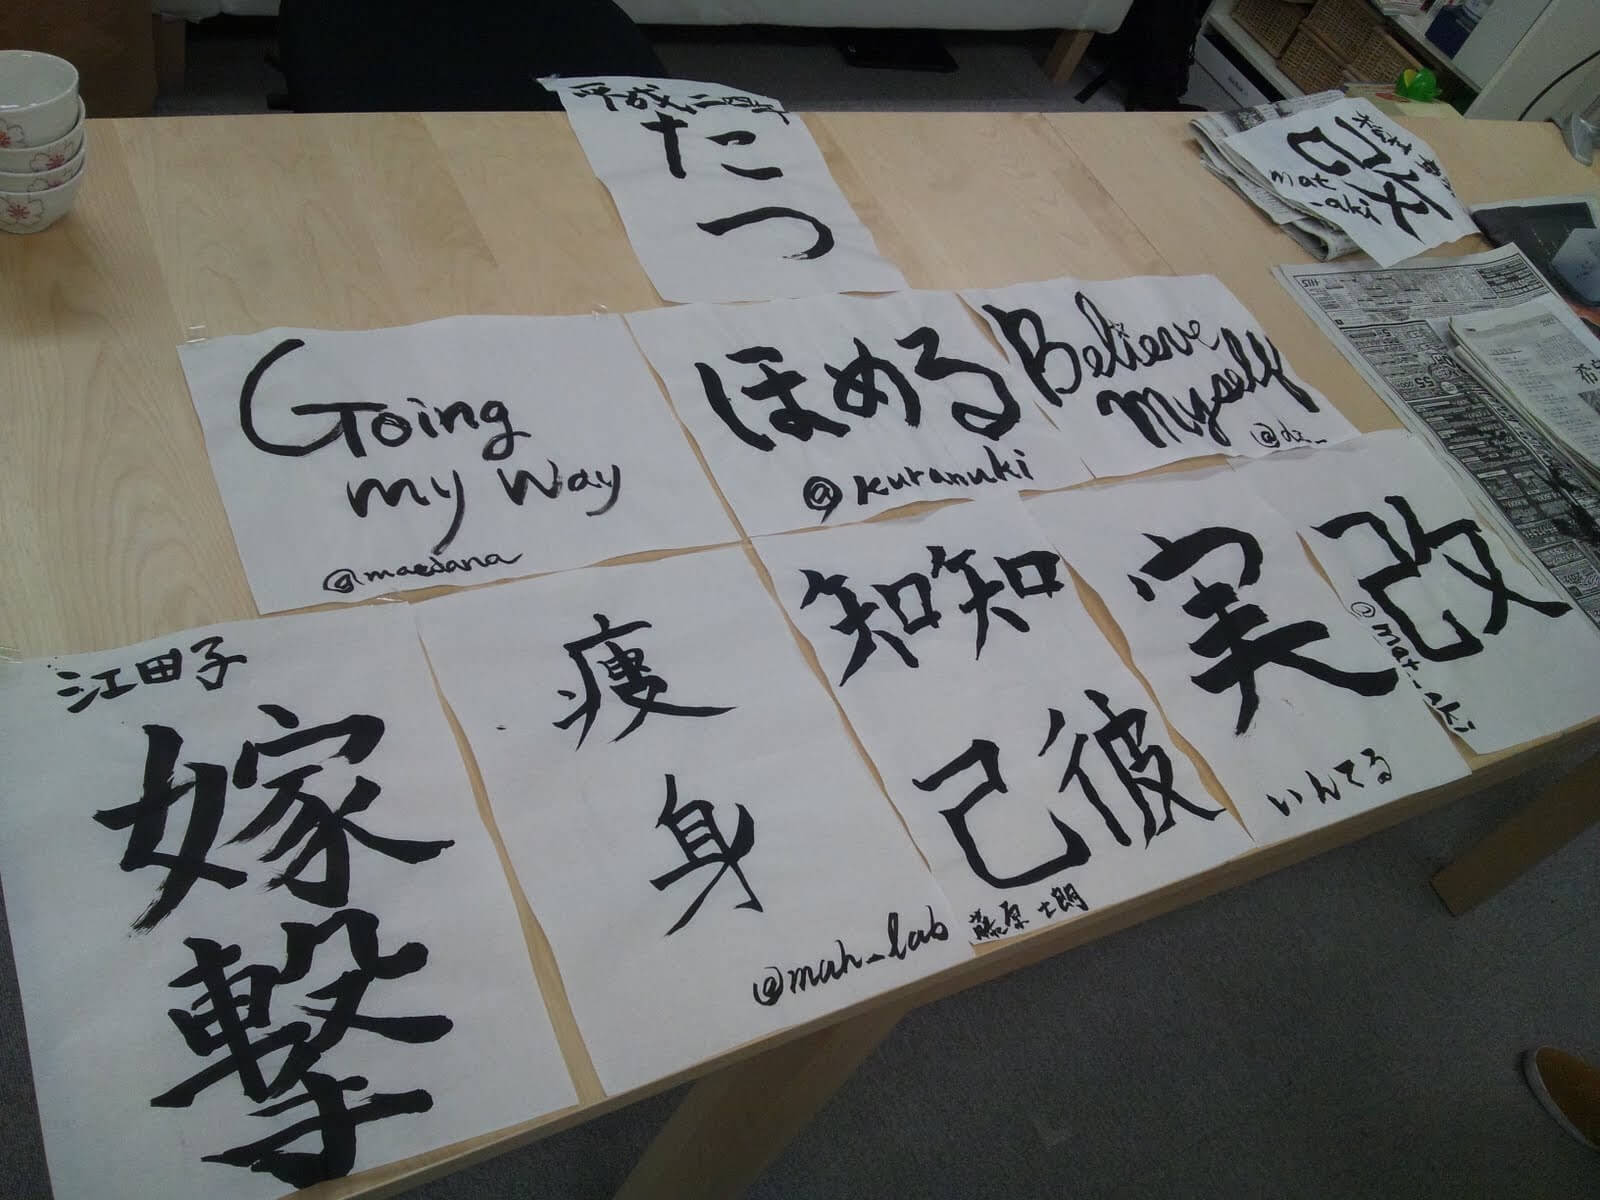 平成二四年
たつ
改
mat_aki
Going
my way
@maedana
ほめる
@kuranuki
Believe
myself
@dz_
江田子
嫁
撃
痩
身
@mah_lab
知彼
知己
藤原士朗
実
いんてる
改
@mat_aki